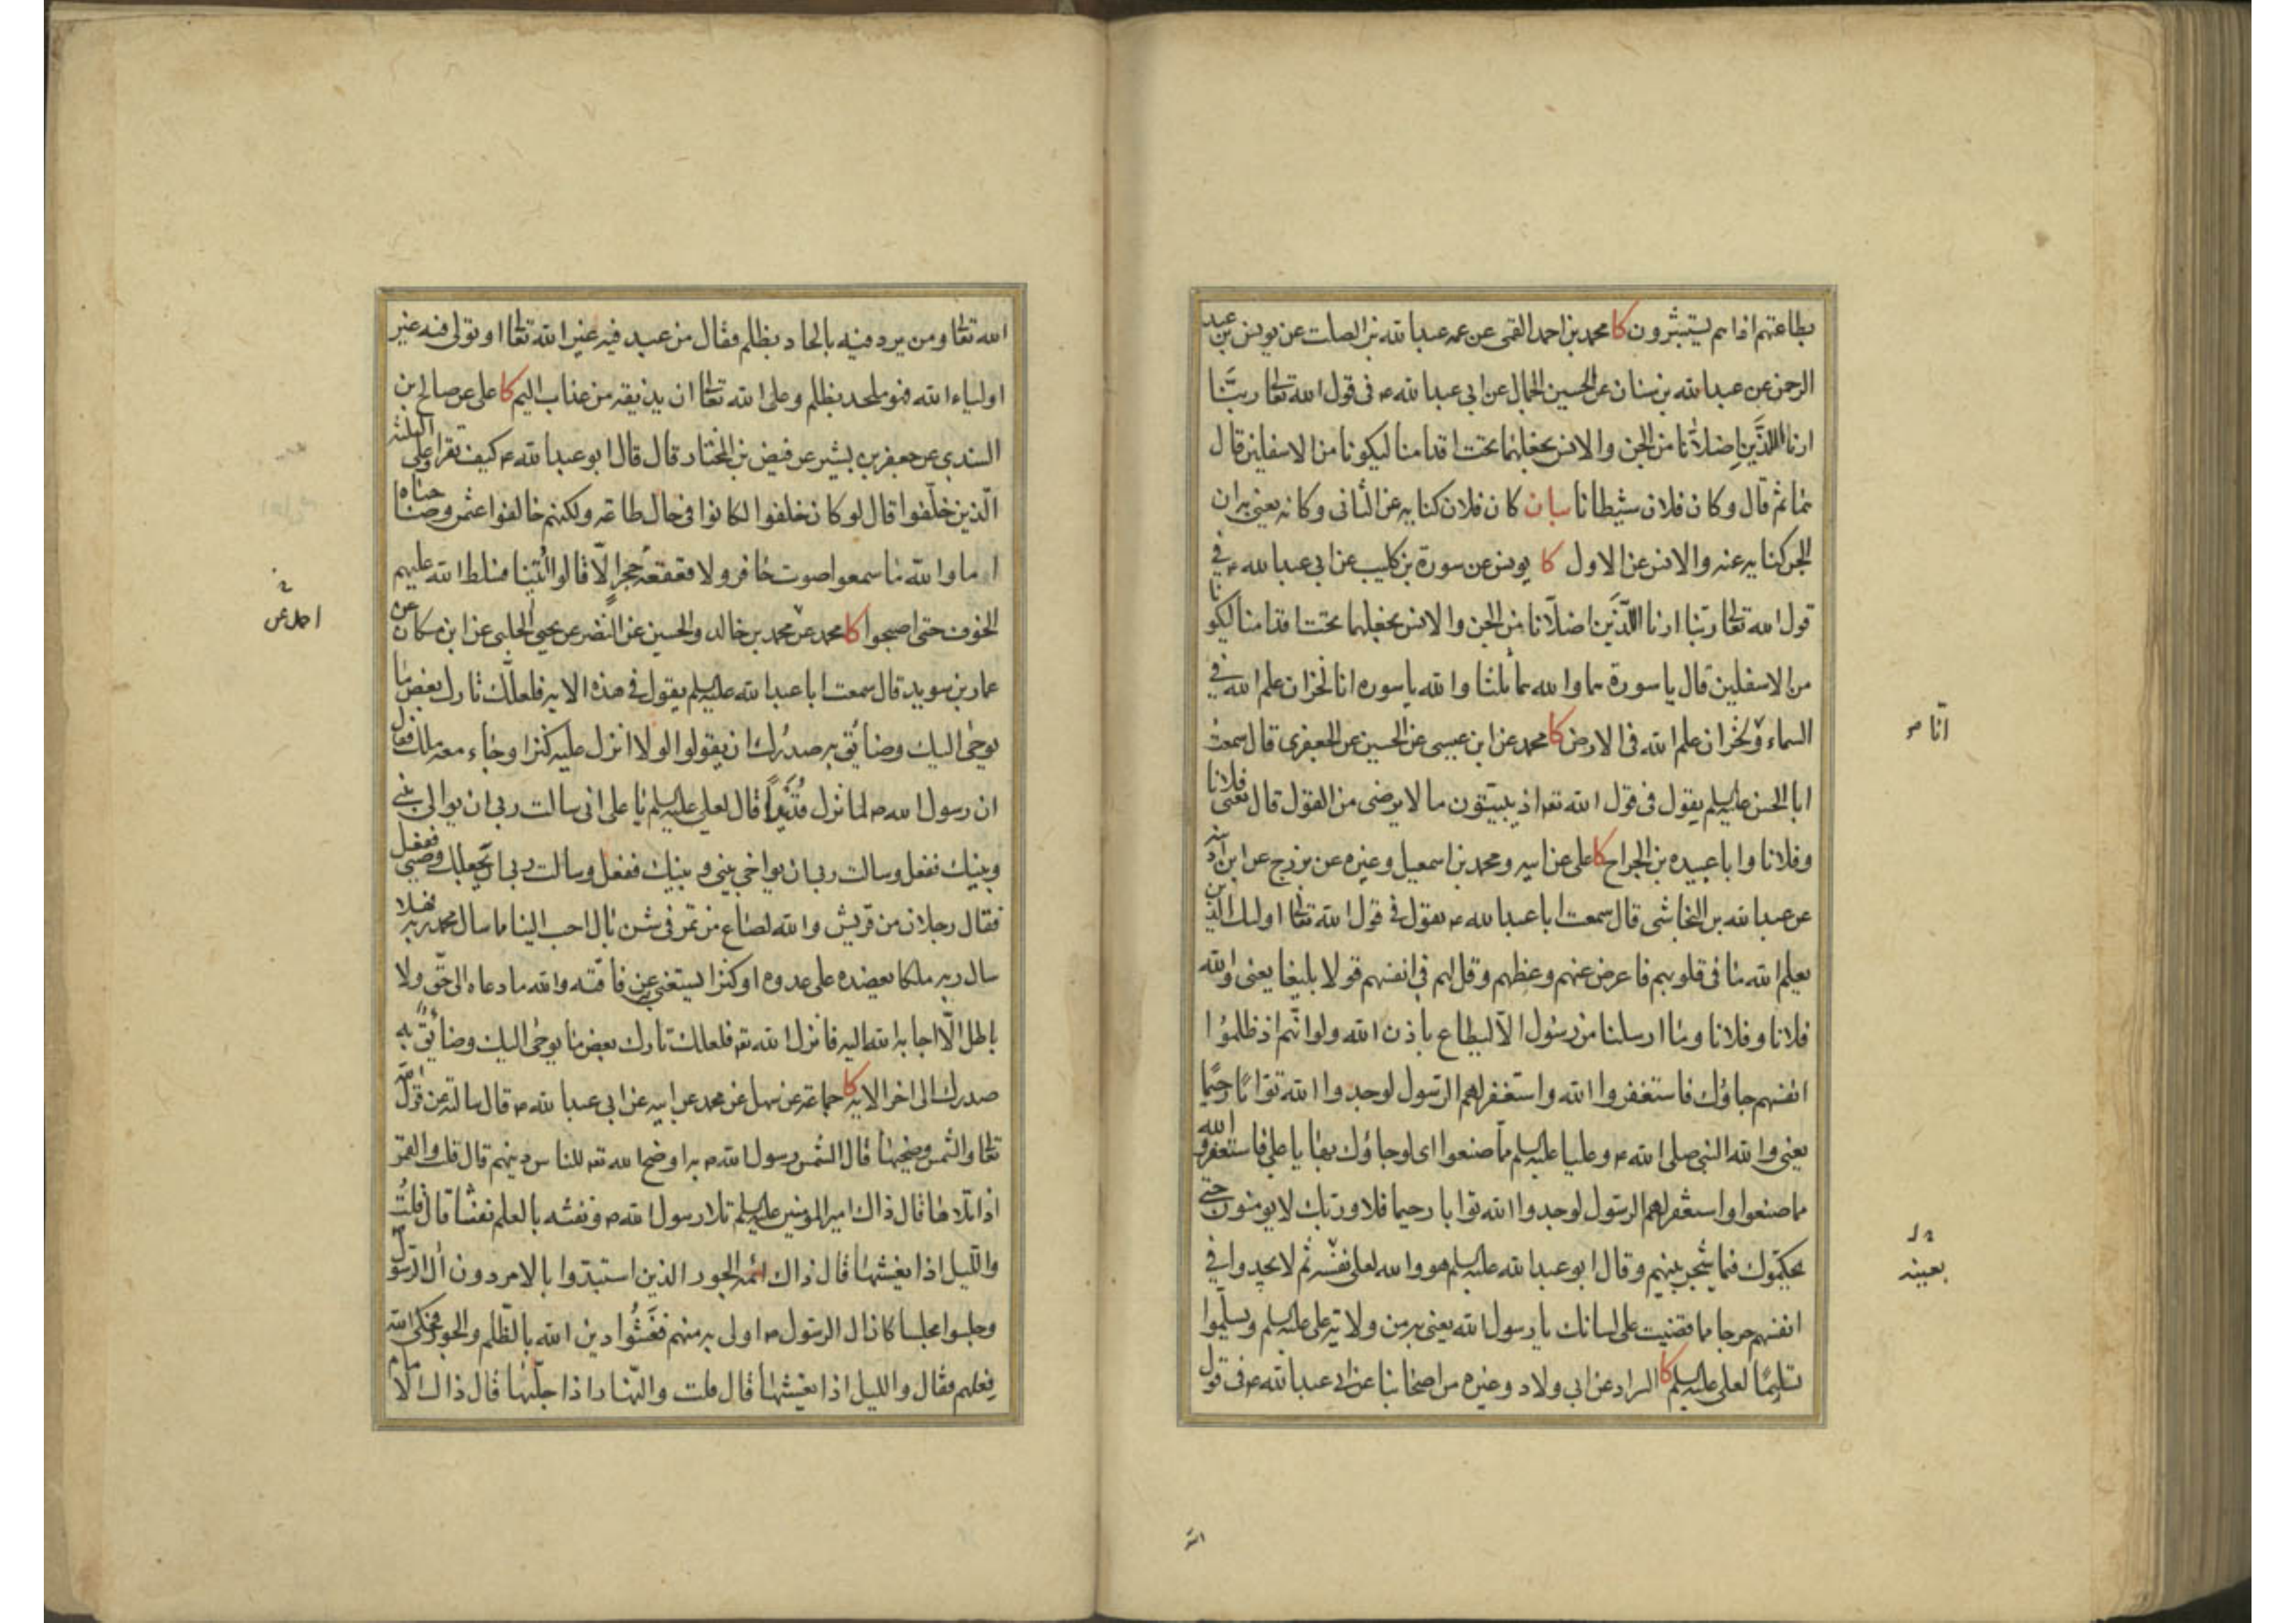 بطاعتهم اذا هم يستبشرون كا محمد بن احمد القمى عن عمه عبد الله بن الصلت عن يونس بن عبد
الرحمن عن عبد الله بن سنان عن الحسين الجمال عن ابى عبد الله ع فى قول الله تعالى ربَّنا
ارنا اللذَين اضلّانا من الجن والانس نجعلهما تحت اقدامنا ليكونا من الاسفلين قال
هما ثم قال وكان فلان شيطانا بيان كان فلان كناية عن الثانى وكانه يعنى به ان
الجن كناية عنه والانس عن الاول كا يونس عن سورة بن كليب عن ابى عبد الله ع فى
قول الله تعالى ربنا ارنا اللذَين اضلّانا من الجن والانس نجعلهما تحت اقدامنا ليكونا
من الاسفلين قال يا سورة هما والله هما ثلثا والله يا سورة انا لخزان علم الله فى
السماء و لخزان علم الله فى الارض كا محمد عن ابن عيسى عن الحسين عن الجعفرى قال سمعت
ابا الحسن عليه السلم يقول فى قول الله تعه اذ يبيّتون ما لا يرضى من القول قال يعنى فلانا
وفلانا وابا عبيده بن الجراح كا على عن ابيه ومحمد بن اسمعيل وغيره عن بزرج عن ابن اذينه
عن عبد الله بن النجاشى قال سمعت ابا عبد الله ع يقول فى قول الله تعالى اولئك الذين
يعلم الله ما فى قلوبهم فاعرض عنهم وعظهم وقل لهم فى انفسهم قولا بليغا يعنى والله
فلانا وفلانا وما ارسلنا من رسول الّا ليطاع باذن الله ولو انّهم اذ ظلموا
انفسهم جاؤك فاستغفروا الله واستغفر لهم الرسول لوجدوا الله توّابًا رحيمًا
يعنى والله النبى صلى الله ع وعليا عليه السلم مما صنعوا اى لو جاؤك بها يا على فاستغفروا الله
مما صنعوا واستغفر لهم الرسول لوجدوا الله توابا رحيما فلا وربك لا يومنون حتى
يحكموك فيما شجر بينهم وقال ابو عبد الله عليه السلم هو والله لعلى نفسه ثم لا يجدوا فى
انفسهم حرجا مما قضيت على لسانك يا رسول الله يعنى به من ولاية على عليه السلم ويسلموا
تسليمًا لعلى عليه السلم كا السراد عن ابى ولاد وغيره من اصحابنا عن ابى عبد الله ع فى قول
انّا
بعينه
الله
الله تعالى ومن يرد فيه بالحاد بظلم فقال من عبد فيه غير الله تعالى او تولى فيه غير
اولياء الله فهو ملحد بظلم وعلى الله تعالى ان يذيقه من عذاب اليم كا على عن صالح بن
السندى عن جعفر بن بشير عن فيض بن المختار قال قال ابو عبد الله ع كيف تقرا وعلى الثلثة
الّذين خلّفوا قال لو كان خلفوا لكانوا فى حال طاعة ولكنهم خالفوا عثمن وصاحباه
اما والله ما سمعوا صوت حافر ولا قعقعة حجر إلّا قالوا اُتينا فسلط الله عليهم
الخوف حتى اصبحوا كا محمد عن محمد بن خالد والحسين عن النضر عن يحيى الحلبى عن ابن مسكان عن
عمار بن سويد قال سمعت ابا عبد الله عليه السلم يقول فى هذه الاية فلعلّك تارك بعض ما
يوحى اليك وضائق به صدرك ان يقولوا لولا انزل عليه كنز او جاء معه ملك فقال
ان رسول الله ص لما نزل قُدَيدًا قال لعلى عليه السلم يا على انى سالت ربى ان يوالى بينى
وبينك ففعل وسالت ربى ان يواخى بينى وبينك ففعل وسألت ربى ان يجعلك وصيى ففعل
فقال رجلان من قريش والله لصاع من تمر فى شن بال احب الينا مما سال محمد ربه فهلا
سال ربه ملكا يعضده على عدوه او كنزا يستغنى به عن فاقته والله ما دعاه الى حقّ ولا
باطل الّا اجابه الله اليه فانزل الله تعه فلعلك تارك بعض ما يوحى اليك وضائق به
صدرك الى اخر الاية كا جماعة عن سهل عن محمد عن ابيه عن ابى عبد الله ع قال سالته عن قول الله
تعالى والشمس وضحيها قال الشمس رسول الله ص به اوضح الله تعه للناس دينهم قال قلت والقمر
اذا تلاها قال ذاك امير المومنين عليه السلم تلا رسول الله ص ونفثه بالعلم نفثا قال قلتُ
والّليل اذا يغشيها قال ذاك ائمة الجور الذين استبدّوا بالامر دون آل الرسول
وجلسوا مجلسا كان آل الرسول ص اولى به منهم فغَشُوا دين الله بالظّلم والجور فحكى الله
فعلهم فقال والليل اذا يغشيها قال قلت والنّهار اذا جلّيها قال ذاك الامام
احمد عن